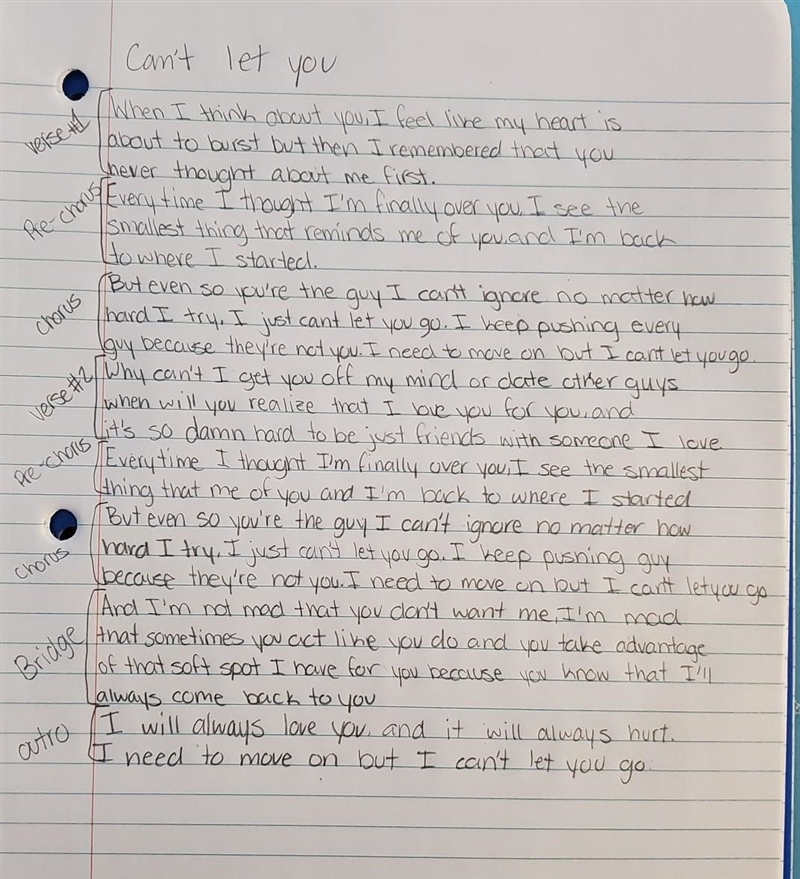 Can't let you
verse #1
When I think about you, I feel like my heart is
about to burst but then I remembered that you
never thought about me first.
Pre-chorus
Everytime I thought I'm finally over you, I see the
smallest thing that reminds me of you, and I'm back
to where I started.
chorus
But even so you're the guy I can't ignore no matter how
hard I try, I just can't let you go. I keep pushing every
guy because they're not you. I need to move on but I can't let you go.
verse #2
Why can't I get you off my mind or date other guys
when will you realize that I love you for you, and
it's so damn hard to be just friends with someone I love
Pre-chorus
Everytime I thought I'm finally over you, I see the smallest
thing that me of you and I'm back to where I started
chorus
But even so you're the guy I can't ignore no matter how
hard I try, I just can't let you go. I keep pushing guy
because they're not you. I need to move on but I can't let you go
Bridge
And I'm not mad that you don't want me, I'm mad
that sometimes you act like you do and you take advantage
of that soft spot I have for you because you know that I'll
always come back to you
outro
I will always love you, and it will always hurt.
I need to move on but I can't let you go.